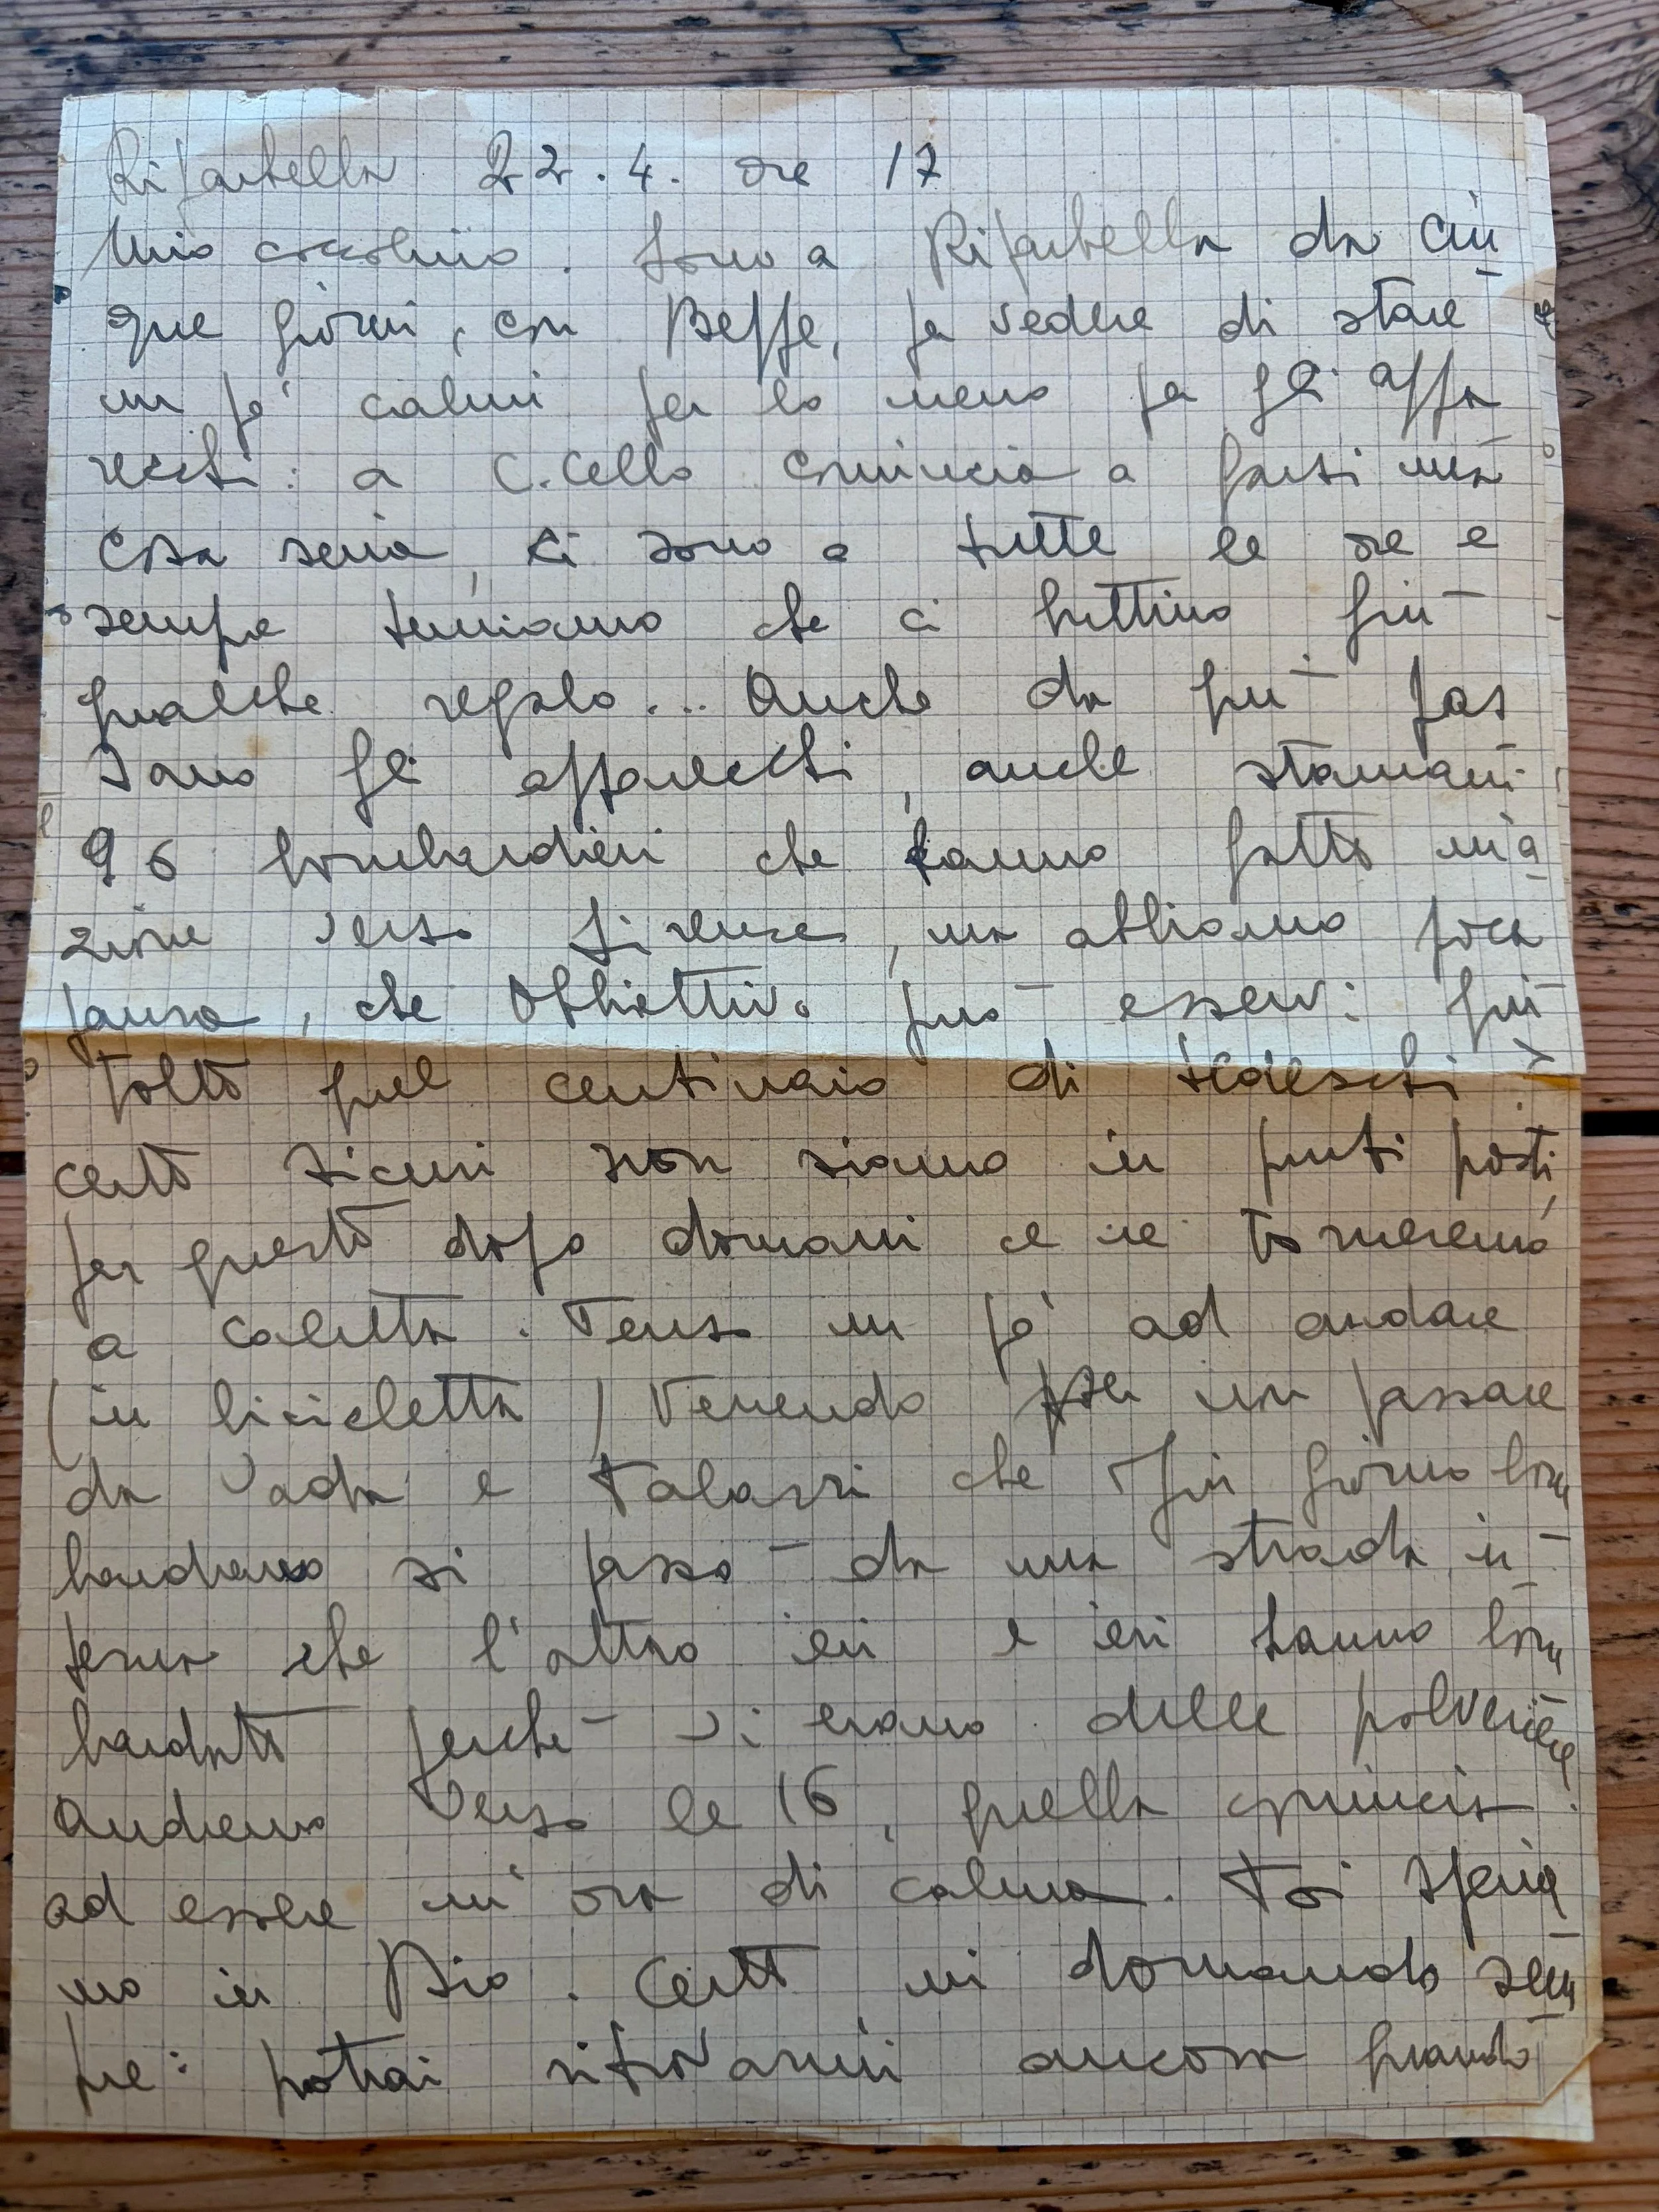 Riparbella 22.4. ore 17
Mio coccolino. Sono a Riparbella da cin
que giorni, con Beppe, per vedere di stare
un po' calmi per lo meno per gli appa
recchi: a C.cello comincia a farsi una
cosa seria, ci sono a tutte le ore e
sempre temiamo che ci buttino giù
qualche regalo... Anche da qui pas
sano gli apparecchi, anche stamani
96 bombardieri che hanno fatto un'a
zione verso Firenze, ma abbiamo poca
paura, che obbiettivo può esservi qui
tolto quel centinaio di tedeschi?
certo sicuri non siamo in questi posti,
per questo dopo domani ce ne torneremo
a Caletta. Penso un po' ad andare
(in bicicletta) venendo per non passare
da Vada e Polassi che ogni giorno bom
bardano si passò da una strada in
terna che l'altro ieri e ieri hanno bom
bardato perché vi erano delle polveriere
andremo verso le 16, quella comincia
ad essere un'ora di calma. Poi speria
mo in Dio. Certo mi domando sem
pre: potrai ritrovarmi ancora quando